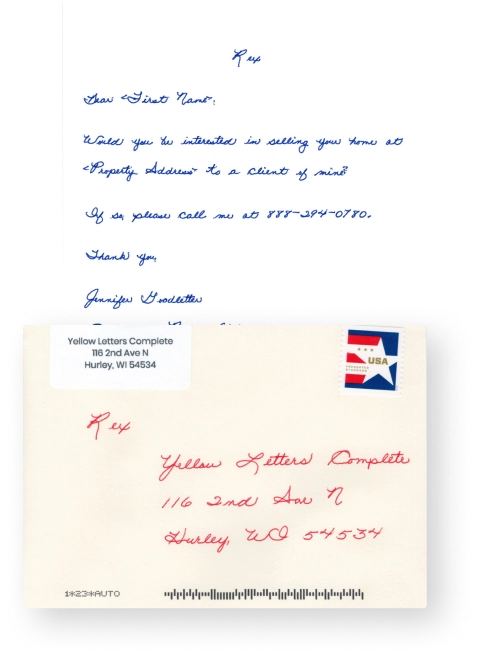 Rex
Dear <First Name>,
Would you be interested in selling your home at
<Property Address> to a client of mine?
If so, please call me at 888-294-0780.
Thank you,
Jennifer Goodletter
Yellow Letters Complete
116 2nd Ave N
Hurley, WI 54534
USA
Rex
Yellow Letters Complete
116 2nd Ave N
Hurley, WI 54534
1*23*AUTO